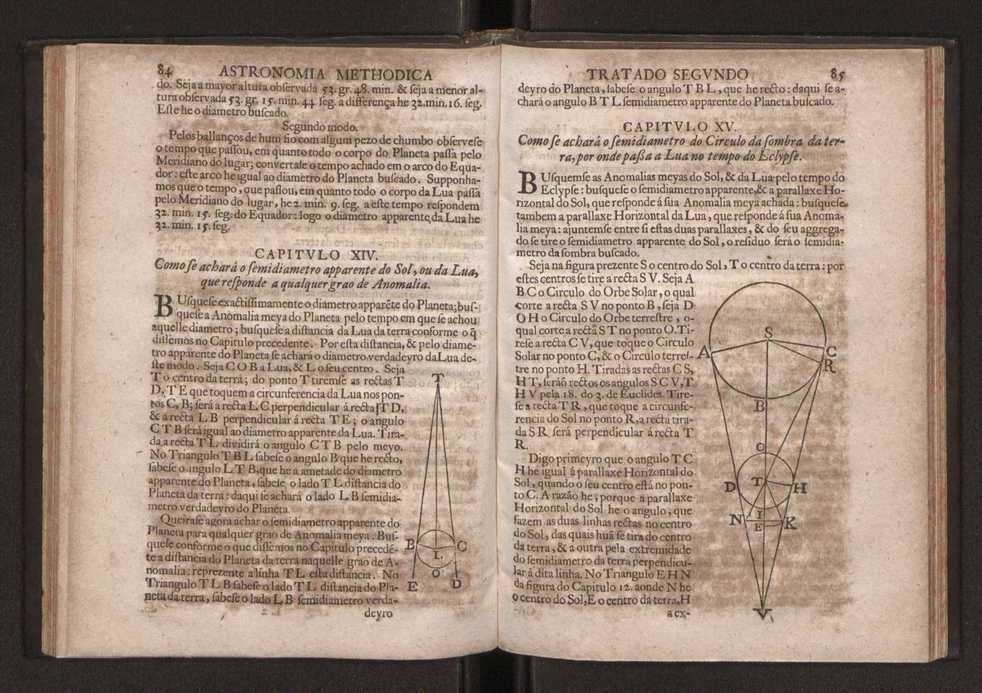 84 ASTRONOMIA METHODICA
do. Seja a mayor altura observada 53. gr. 48. min. & seja a menor al-
tura observada 53. gr. 15. min. 44. seg. a differença he 32. min. 16. seg.
Este he o diametro buscado.
Segundo modo.
Pelos ballanços de hum fio com algum pezo de chumbo observese
o tempo que passou, em quanto todo o corpo do Planeta passa pelo
Meridiano do lugar; convertase o tempo achado em o arco do Equa-
dor: este arco he igual ao diametro do Planeta buscado. Supponha-
mos que o tempo, que passou, em quanto todo o corpo da Lua passa
pelo Meridiano do lugar, he 2. min. 9. seg. a este tempo respondem
32. min. 15. seg. do Equador: logo o diametro apparente da Lua he
32. min. 15. seg.
CAPITVLO XIV.
Como se achará o semidiametro apparente do Sol, ou da Lua,
que responde a qualquer grao de Anomalia.
BUsquese exactissimamente o diametro apparẽte do Planeta; bus-
quese a Anomalia meya do Planeta pelo tempo em que se achou
aquelle diametro; busquese a distancia da Lua da terra conforme o q̃
dissemos no Capitulo precedente. Por esta distancia, & pelo diame-
tro apparente do Planeta se achará o diametro verdadeyro da Lua de-
ste modo. Seja C O B a Lua, & L o seu centro. Seja
T o centro da terra; do ponto T tiremse as rectas T
D, T E que toquem a circunferencia da Lua nos pon-
tos C, B; será a recta L C perpendicular á recta T D,
& a recta L B perpendicular á recta T E; o angulo
C T B será igual ao diametro apparente da Lua. Tira-
da a recta T L dividirá o angulo C T B pelo meyo.
No Triangulo T B L sabese o angulo B que he recto,
sabese o angulo L T B, que he a ametade do diametro
apparente do Planeta, sabese o lado T L distancia do
Planeta da terra: daqui se achará o lado L B semidia-
metro verdadeyro do Planeta.
Queirase agora achar o semidiametro apparente do
Planeta para qualquer grao de Anomalia meya. Bus-
quese conforme o que dissemos no Capitulo precedẽ-
te a distancia do Planeta da terra naquelle grao de A-
nomalia: reprezente a linha T L esta distancia. No
Triangulo T L B sabese o lado T L distancia do Pla-
neta da terra, sabese o lado L B semidiametro verda-
deyro
T
B C
L
O
E D
TRATADO SEGVNDO 85
deyro do Planeta, sabese o angulo T B L, que he recto: daqui se a-
chará o angulo B T L semidiametro apparente do Planeta buscado.
CAPITVLO XV.
Como se achará o semidiametro do Circulo da sombra da ter-
ra, por onde passa a Lua no tempo do Eclypse.
BUsquemse as Anomalias meyas do Sol, & da Lua pelo tempo do
Eclypse: busquese o semidiametro apparente, & a parallaxe Ho-
rizontal do Sol, que responde á sua Anomalia meya achada: busquese
tambem a parallaxe Horizontal da Lua, que responde á sua Anoma-
lia meya: ajuntemse entre si estas duas parallaxes, & do seu aggrega-
do se tire o semidiametro apparente do Sol, o residuo será o semidia-
metro da sombra buscado.
Seja na figura prezente S o centro do Sol, T o centro da terra: por
estes centros se tire a recta S V. Seja A
B C o Circulo do Orbe Solar, o qual
corte a recta S V no ponto B, seja D
O H o Circulo do Orbe terrestre, o-
qual corte a recta S T no ponto O. Ti-
rese a recta C V, que toque o Circulo
Solar no ponto C, & o Circulo terres-
tre no ponto H. Tiradas as rectas C S,
H T, serão rectos os angulos S C V, T
H V pela 18. do 3. de Euclides. Tire-
se a recta T R, que toque a circunfe-
rencia do Sol no ponto R, a recta tira-
da S R será perpendicular á recta T
R.
Digo primeyro que o angulo T C
H he igual á parallaxe Horizontal do
Sol, quando o seu centro está no pon-
to C. A razão he; porque a parallaxe
Horizontal do Sol he o angulo, que
fazem as duas linhas rectas no centro
do Sol, das quais huã se tira do centro
da terra, & a outra pela extremidade
do semidiametro da terra perpendicu-
lar á dita linha. No Triangulo E H N
da figura do Capitulo 12. aonde N he
o centro do Sol, E o centro da terra, H
a ex-
S
A C
R
B
O
T
D H
I
N E K
V